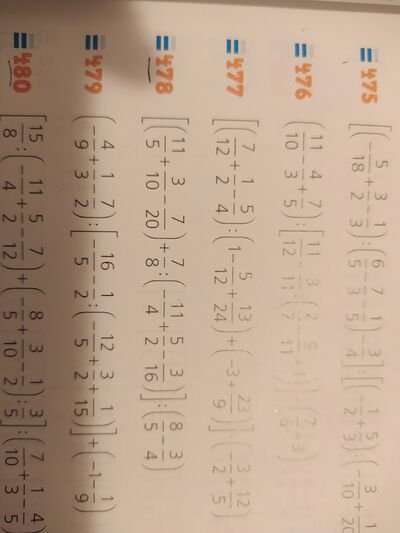 475 [(5/18 + 3/2 - 1/3) : (6/5 - 7/3 - 1/5) - 3/4] : [(1/2 + 5/3) : (3/10 + 1/20
476 (11/10 - 4/3 + 7/5) : [11/12 - 3/11 : (2/7 - 9/11
477 [(7/12 + 1/2 - 5/4) : (1 - 5/12 + 13/24) + (-3 + 23/9)] · (-3/2 + 12/5)
478 [(11/5 + 3/10 - 7/20) + 7/8 : (11/4 + 5/2 - 3/16)] : (8/5 - 3/4)
479 (4/9 + 1/3 - 7/2) : [16/5 - 1/2 : (12/5 + 3/2 + 1/15)] + (-1 - 1/9)
480 [15/8 : (11/4 + 5/2 - 7/12) + (8/5 + 3/10 - 1/2) : 3/5] : (7/10 + 1/3 - 4/5)